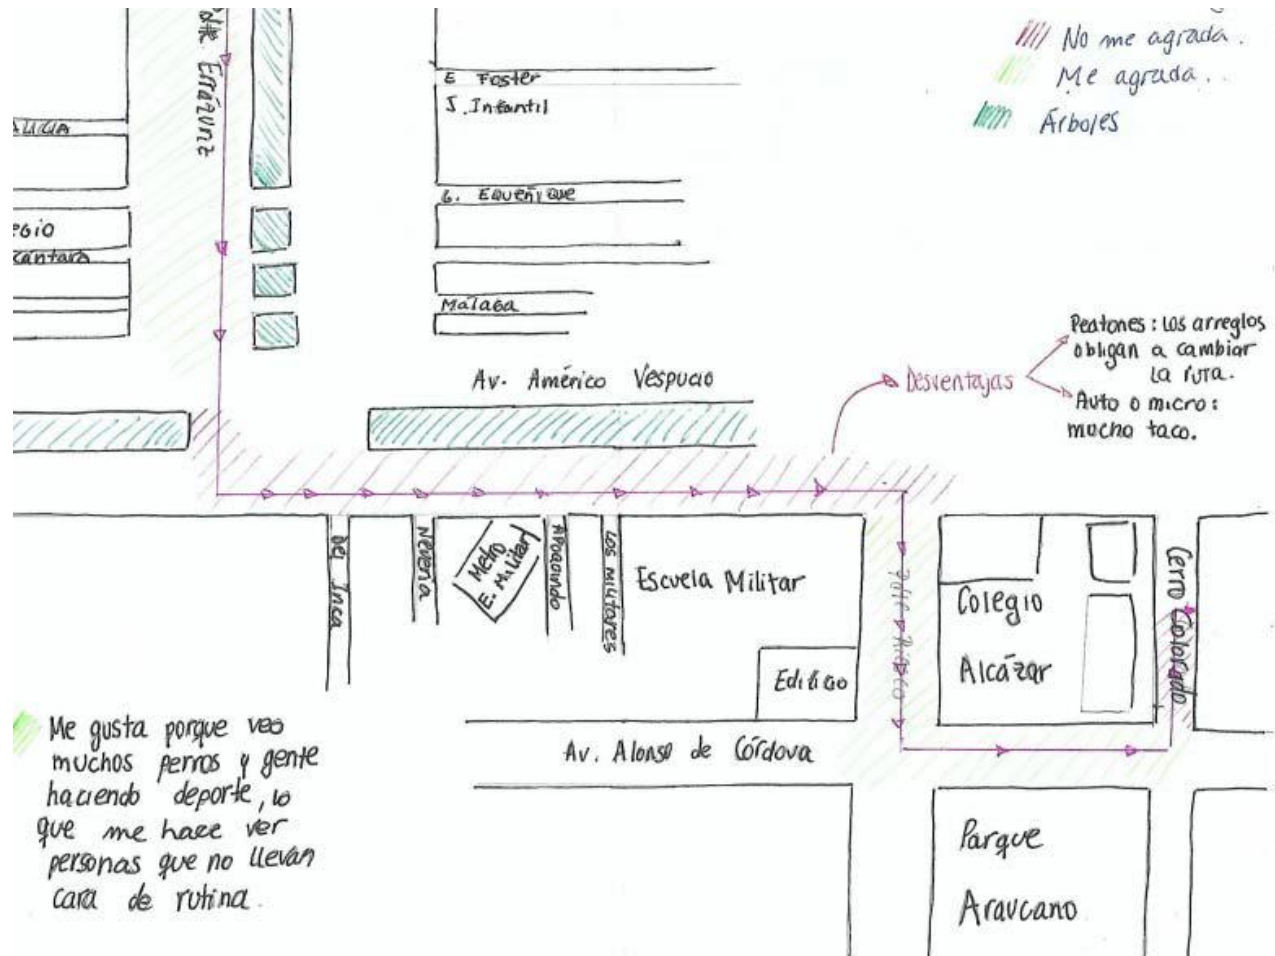 No me agrada.
Me agrada..
Árboles
Errázuriz
E Foster
S. Infantil
G. Equeñique
cántara
Málaga
Av. Américo Vespucio
Desventajas
Peatones: los arreglos
obligan a cambiar
la ruta.
Auto o micro:
mucho taco.
Del Inca
Nevería
Metro
E. Militar
Apoquindo
Los militares
Escuela Militar
Edificio
Colegio
Alcázar
Cerro Colorado
Av. Alonso de Córdova
Parque
Araucano
Me gusta porque veo
muchos perros y gente
haciendo deporte, lo
que me hace ver
personas que no llevan
cara de rutina.